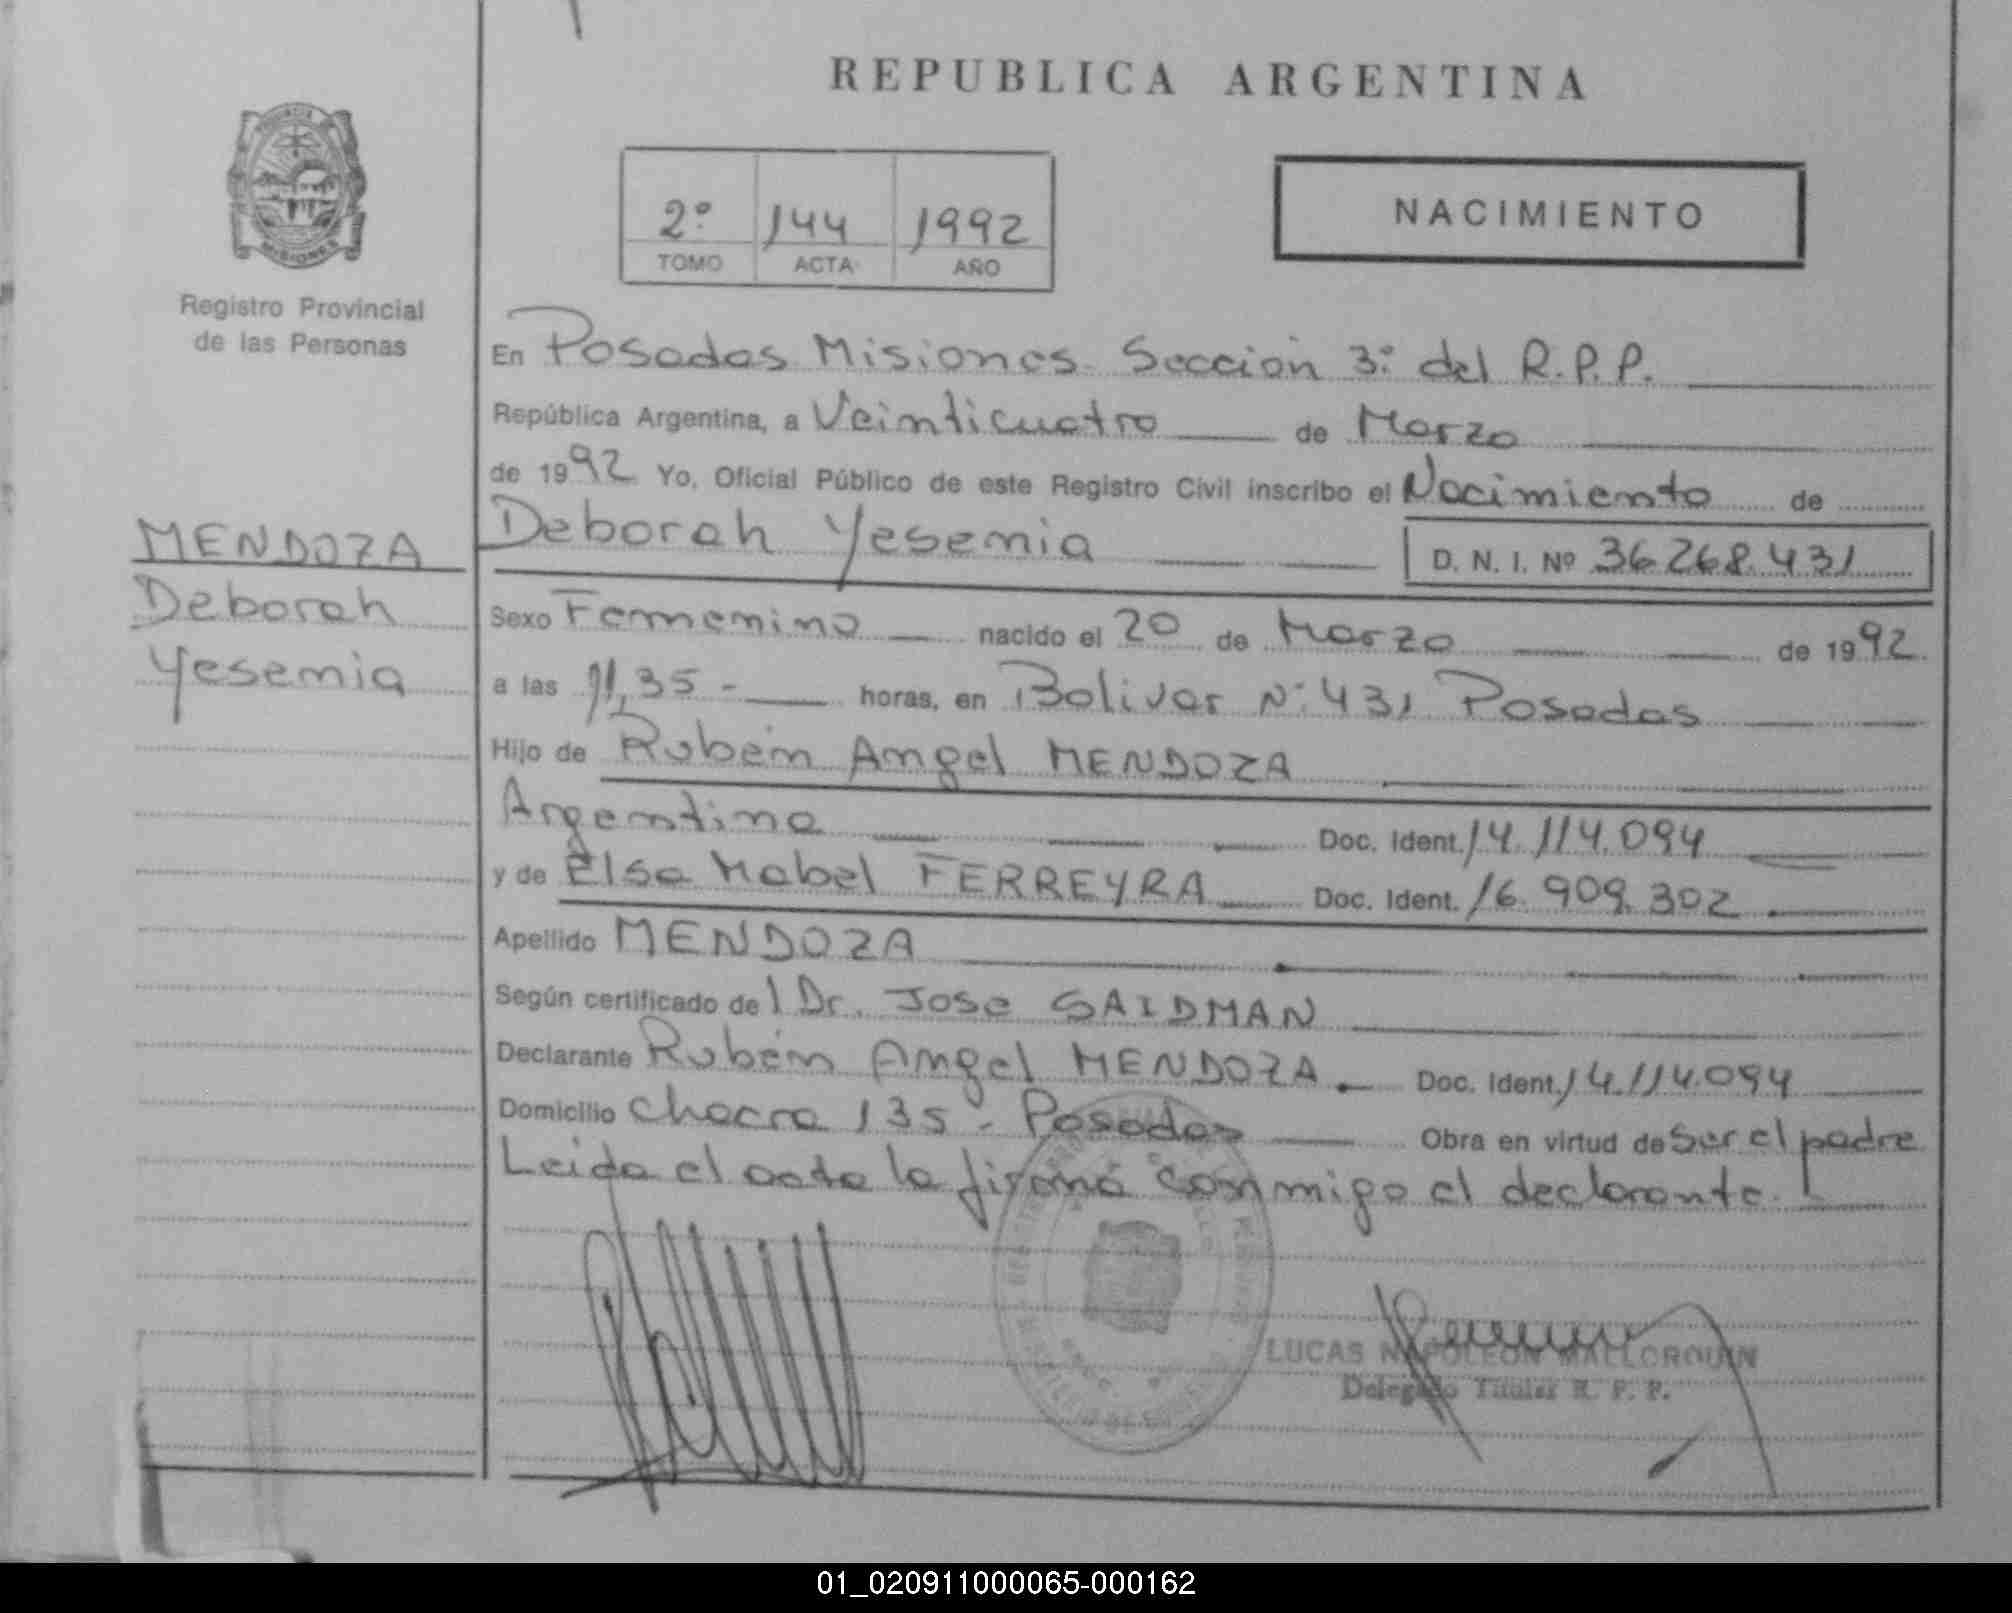 REPUBLICA ARGENTINA
2º 144 1992
TOMO ACTA AÑO
NACIMIENTO
MISIONES
Registro Provincial
de las Personas
MENDOZA
Deborah
Yesemia
En Posadas Misiones. Sección 3ª del R.P.P.
República Argentina, a Veinticuatro de Marzo
de 1992 Yo, Oficial Público de este Registro Civil inscribo el Nacimiento de
Deborah Yesemia D. N. I. Nº 36.268.431
Sexo Femenino nacido el 20 de Marzo de 1992
a las 11,35 - horas, en Bolivar Nº 431 Posadas
Hijo de Rubén Angel MENDOZA
Argentino Doc. Ident. 14.114.094
y de Elsa Mabel FERREYRA Doc. Ident. 16.909.302
Apellido MENDOZA
Según certificado del Dr. Jose SAIDMAN
Declarante Rubén Angel MENDOZA. Doc. Ident. 14.114.094
Domicilio Chacra 135 - Posadas Obra en virtud de Ser el padre
Leida el acta la firma conmigo el declarante.
LUCAS NAPOLEON MALLORQUIN
Delegado Titular R. P. P.
01_020911000065-000162